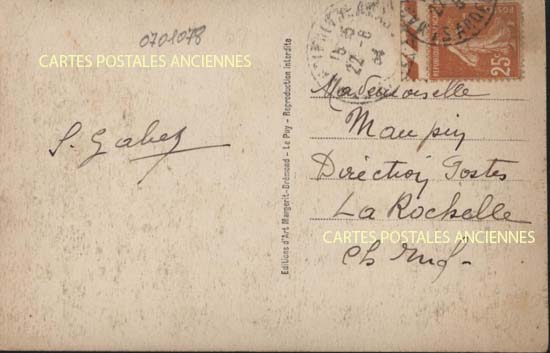 0701078
CARTES POSTALES ANCIENNES
S. Gabez
Editions d'Art Margerit-Brémond - Le Puy - Reproduction interdite
15-45
22-8
34
25c
Mademoiselle
Maupin
Direction Postes
La Rochelle
CARTES POSTALES ANCIENNES
Ch Inf.